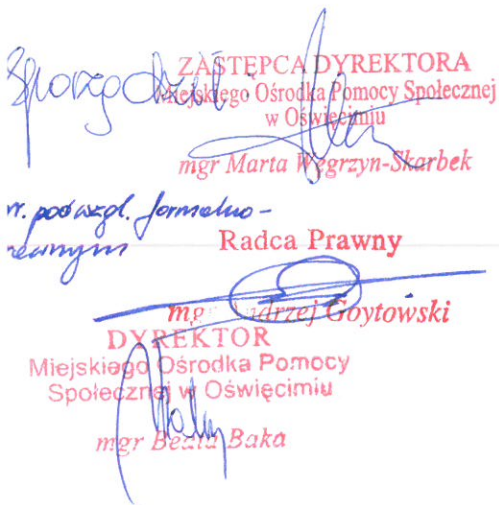 Sporządził:
ZASTĘPCA DYREKTORA
Miejskiego Ośrodka Pomocy Społecznej
w Oświęcimiu
mgr Marta Węgrzyn-Skarbek
pod wzgl. formalno-
Radca Prawny
mgr Andrzej Goytowski
DYREKTOR
Miejskiego Ośrodka Pomocy
Społecznej w Oświęcimiu
mgr Beata Baka